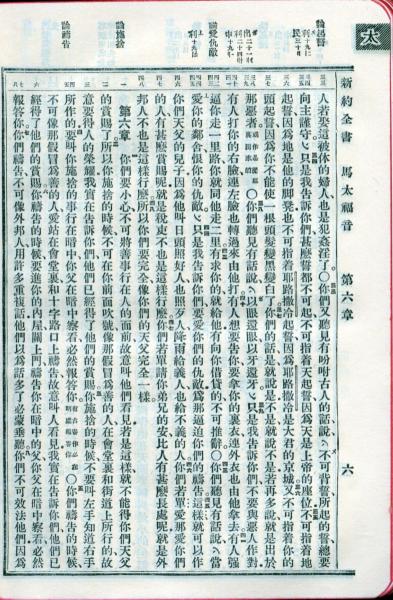 太
新約全書 馬太福音 第六章 六
論起誓
人若娶這被休的婦人也是犯姦淫了○你們又聽見有吩咐古人的話說不可背誓所起的誓總要
向主謹守只是我告訴你們甚麼誓都不可起不可指着天起誓因爲天是上帝的座位不可指着地
起誓因爲地是他的脚凳也不可指着耶路撒冷起誓因爲耶路撒冷是大君的京城又不可指着你的
頭起誓因爲你不能使一根頭髮變黑變白了你們的話是就說是不是就說不是若再多說就是出於
那惡者○你們聽見有話說以眼還眼以牙還牙只是我告訴你們不要與惡人作對
有人打你的右臉連左臉也轉過來由他打有人想要告你要拿你的裏衣連外衣也由他拿去有人強
論愛仇敵
逼你走一里路你就同他走二里有求你的就給他有向你借貸的不可推辭○你們聽見有話說當
愛你的鄰舍恨你的仇敵只是我告訴你們要愛你們的仇敵爲那逼迫你們的禱告這樣就可以作
你們天父的兒子因爲他叫日頭照好人也照歹人降雨給義人也給不義的人你們若單愛那愛你們
的人有甚麼賞賜呢就是稅吏不也是這樣行麼你們若單請你弟兄的安比人有甚麼長處呢就是外
邦人不也是這樣行麼所以你們要完全像你們的天父完全一樣
論施捨
第六章 你們要小心不可將善事行在人的面前故意叫他們看見若是這樣就不能得你們天父
的賞賜了所以你施捨的時候不可在你前面吹號像那假冒爲善的人在會堂裏和街道上所行的故
意要得人的榮耀我實在告訴你們他們已經得了他們的賞賜你施捨的時候不要叫左手知道右手
論禱告
所作的要叫你施捨的事行在暗中你父在暗中察看必然報答你○你們禱告的時候
不可像那假冒爲善的人愛站在會堂裏和十字路口上禱告故意叫人看見我實在告訴你們他們已
經得了他們的賞賜你禱告的時候要進你的內屋關上門禱告你在暗中的父你父在暗中察看必然
報答你你們禱告不可像外邦人用許多重複話他們以爲話多了必蒙垂聽你們不可效法他們因爲